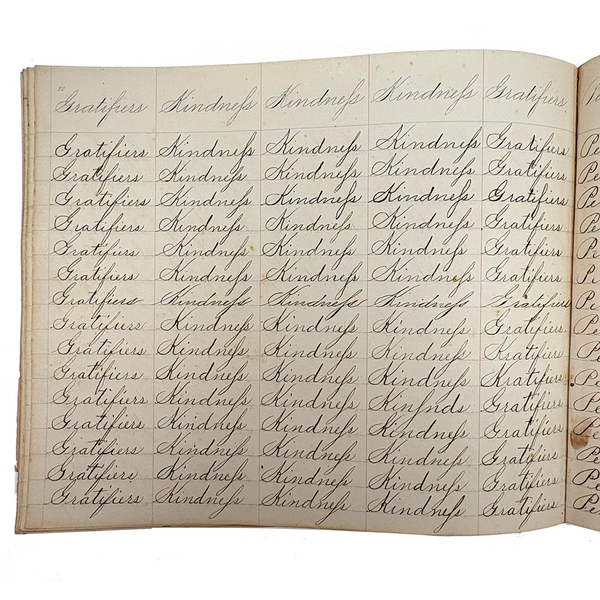 Gratifiers Kindneſs Kindneſs Kindneſs Gratifiers
Gratifiers Kindneſs Kindneſs Kindneſs Gratifiers
Gratifiers Kindneſs Kindneſs Kindneſs Gratifiers
Gratifiers Kindneſs Kindneſs Kindneſs Gratifiers
Gratifiers Kindneſs Kindneſs Kindneſs Gratifiers
Gratifiers Kindneſs Kindneſs Kindneſs Gratifiers
Gratifiers Kindneſs Kindneſs Kindneſs Gratifiers
Gratifiers Kindneſs Kindneſs Kindneſs Gratifiers
Gratifiers Kindneſs Kindneſs Kindneſs Gratifiers
Gratifiers Kindneſs Kindneſs Kindneſs Kratifiers
Gratifiers Kindneſs Kindneſs Kindneſs Kratifiers
Gratifiers Kindneſs Kindneſs Kinfnds Gratifiers
Gratifiers Kindneſs Kindneſs Kindneſs Gratifiers
Gratifiers Kindneſs Kindneſs Kindneſs Gratifiers
Gratifiere Kindneſs Kindneſs Kindneſs Gratifiers
Gratifiers Kindneſs Kindneſs Kindneſs Gratifiers